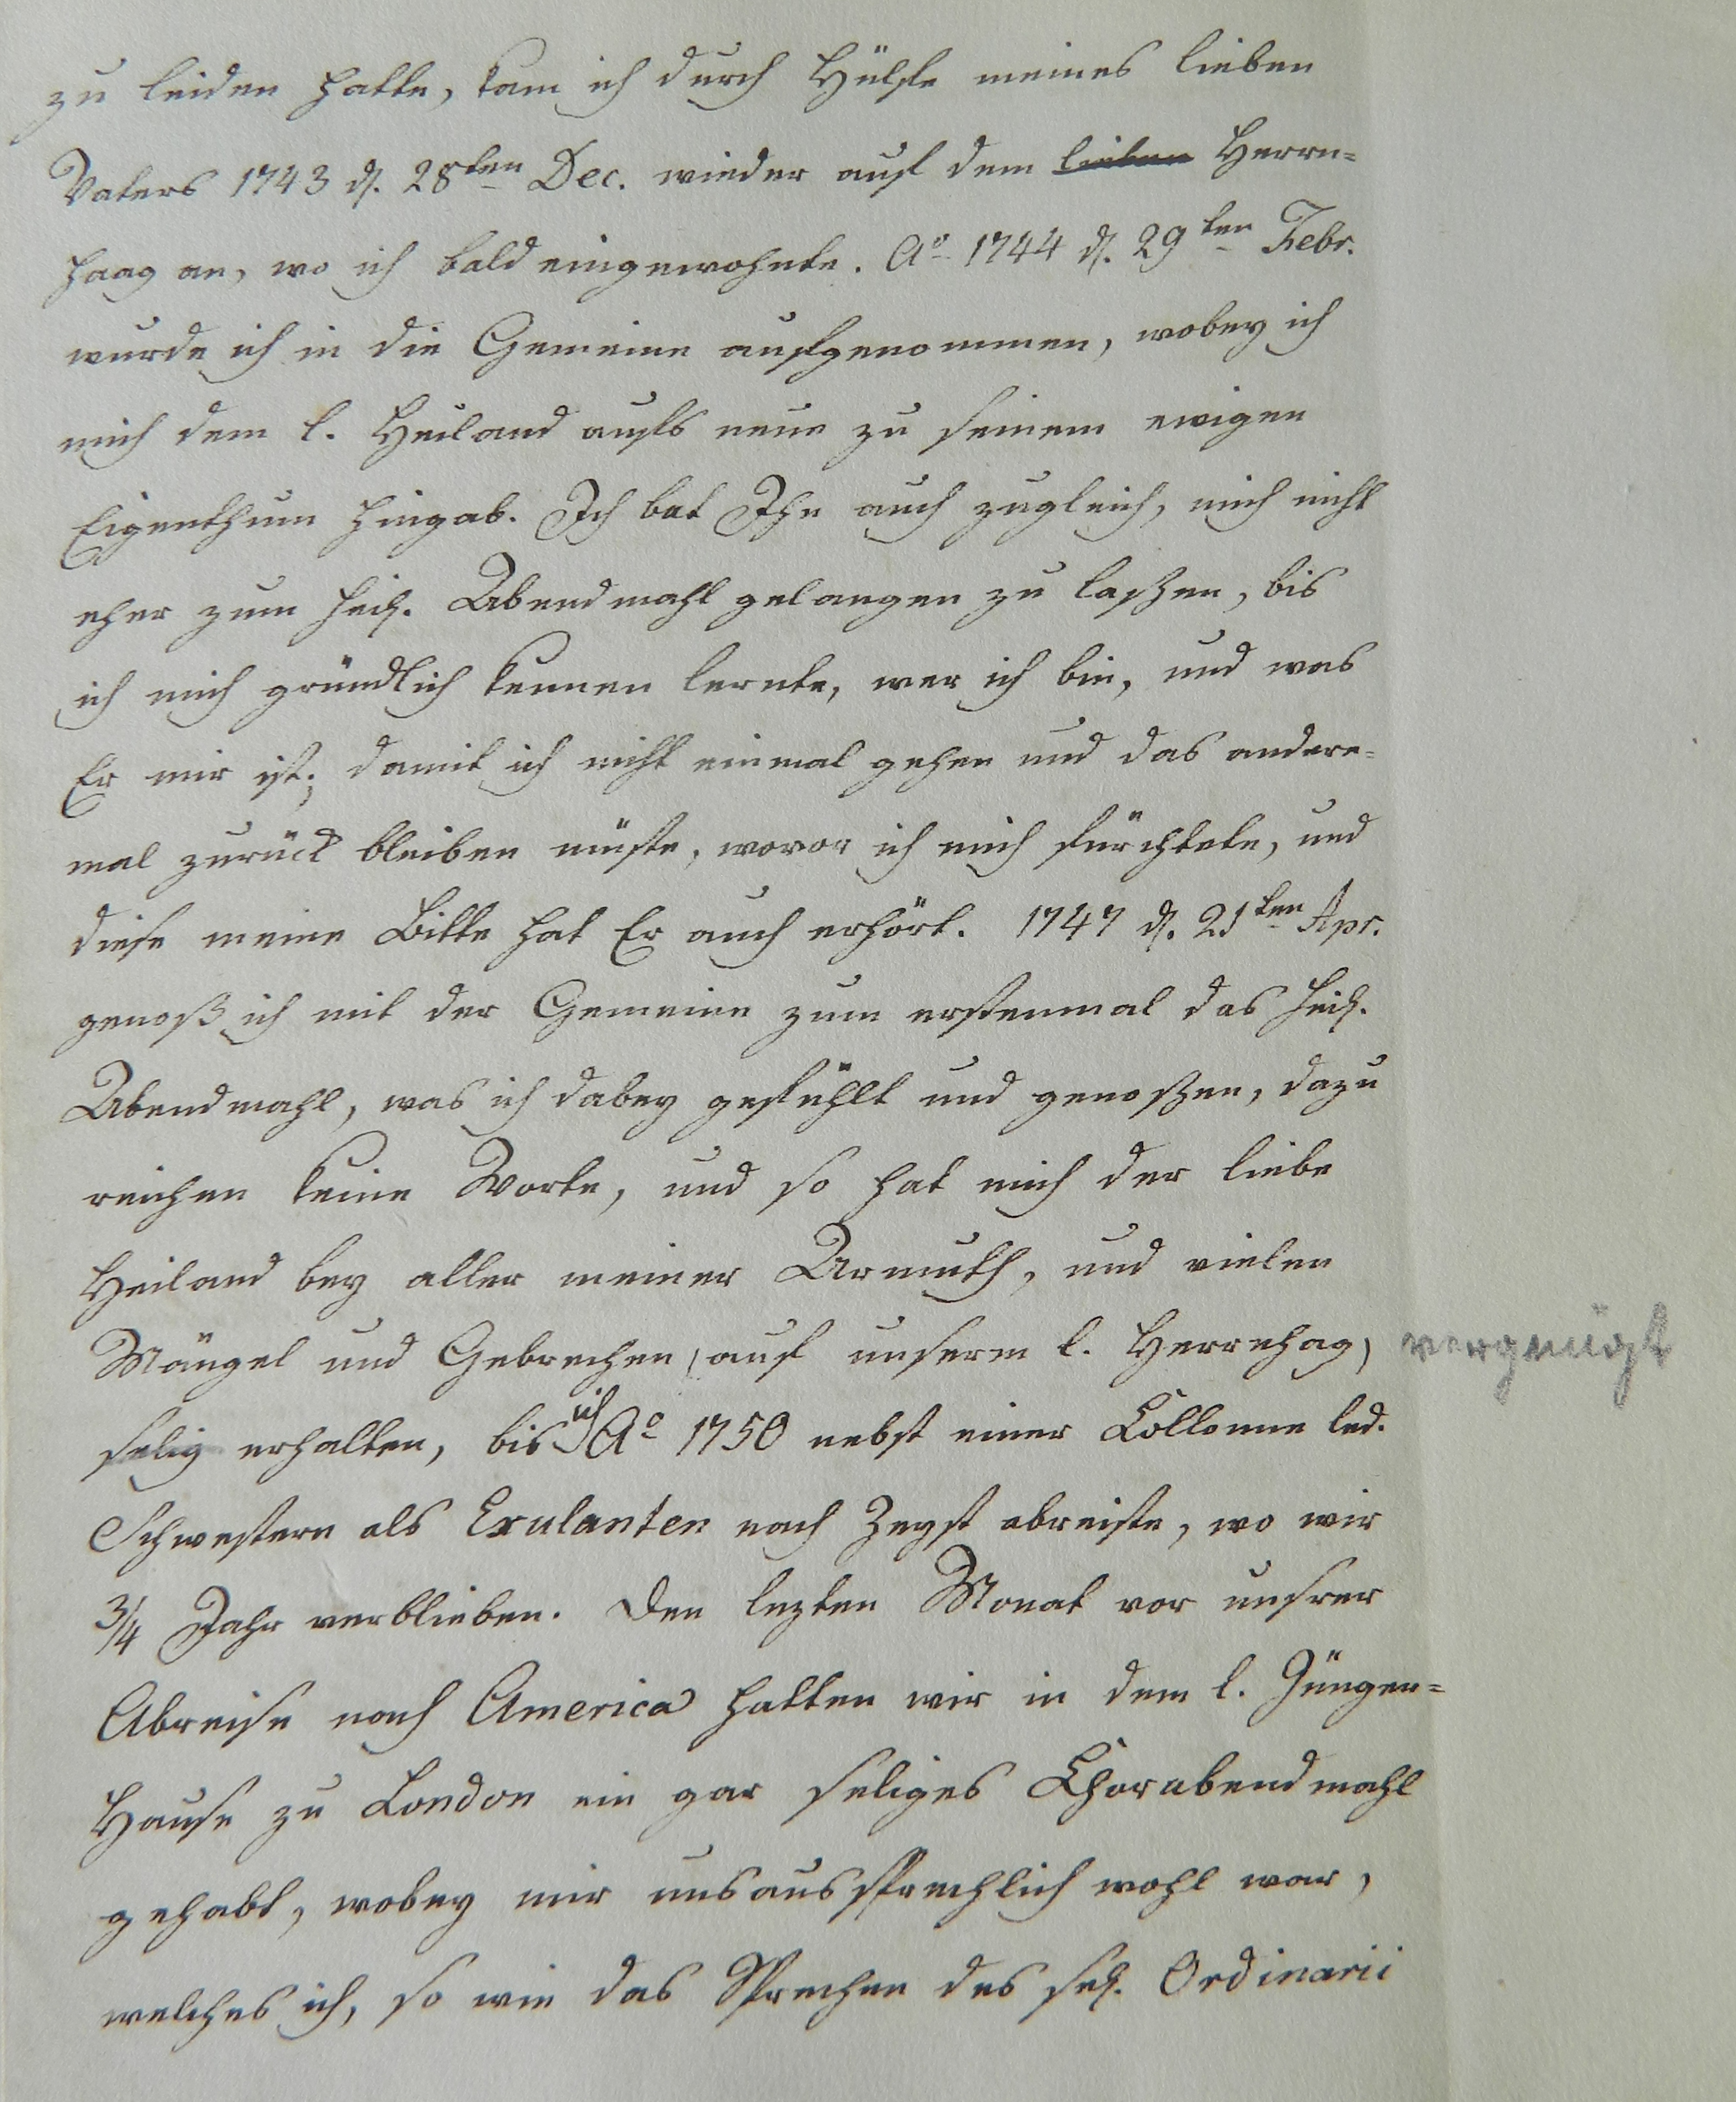 zu leiden hatte, kam ich durch Hülfe meines lieben
Vaters 1743 d. 28ten Dec. wieder auf dem lieben Herrn=
haag an, wo ich bald eingewohnte. Ao 1744 d. 29ten Febr.
wurde ich in die Gemeine aufgenommen, wobey ich
mich dem l. Heiland aufs neue zu seinem ewigen
Eigenthum hingab. Ich bat Ihn auch zugleich, mich nicht
eher zum heil. Abendmahl gelangen zu laßen, bis
ich mich gründlich kennen lernte, wer ich bin, und was
Er mir ist; damit ich nicht einmal gehen und das andere=
mal zurück bleiben müste, wovor ich mich fürchtete, und
diese meine Bitte hat Er auch erhört. 1747 d. 21ten Apr.
genoß ich mit der Gemeine zum erstenmal das heil.
Abendmahl, was ich dabey gefühlt und genoßen, dazu
reichen keine Worte, und so hat mich der liebe
Heiland bey aller meiner Armuth, und vielen
Mängel und Gebrechen, auf unserm l. Herrnhag, vergnügt
selig erhalten, bis ich Ao 1750 nebst einer Collonne led.
Schwestern als Exulanten nach Zeyst abreiste, wo wir
3/4 Jahr verblieben. Den lezten Monat vor unsrer
Abreise nach America hatten wir in dem l. Jünger=
Hause zu London ein gar seliges Chorabendmahl
gehabt, wobey mir unsaussprechlich wohl war,
welches ich, so wie das Sprechen des sel. Ordinarii